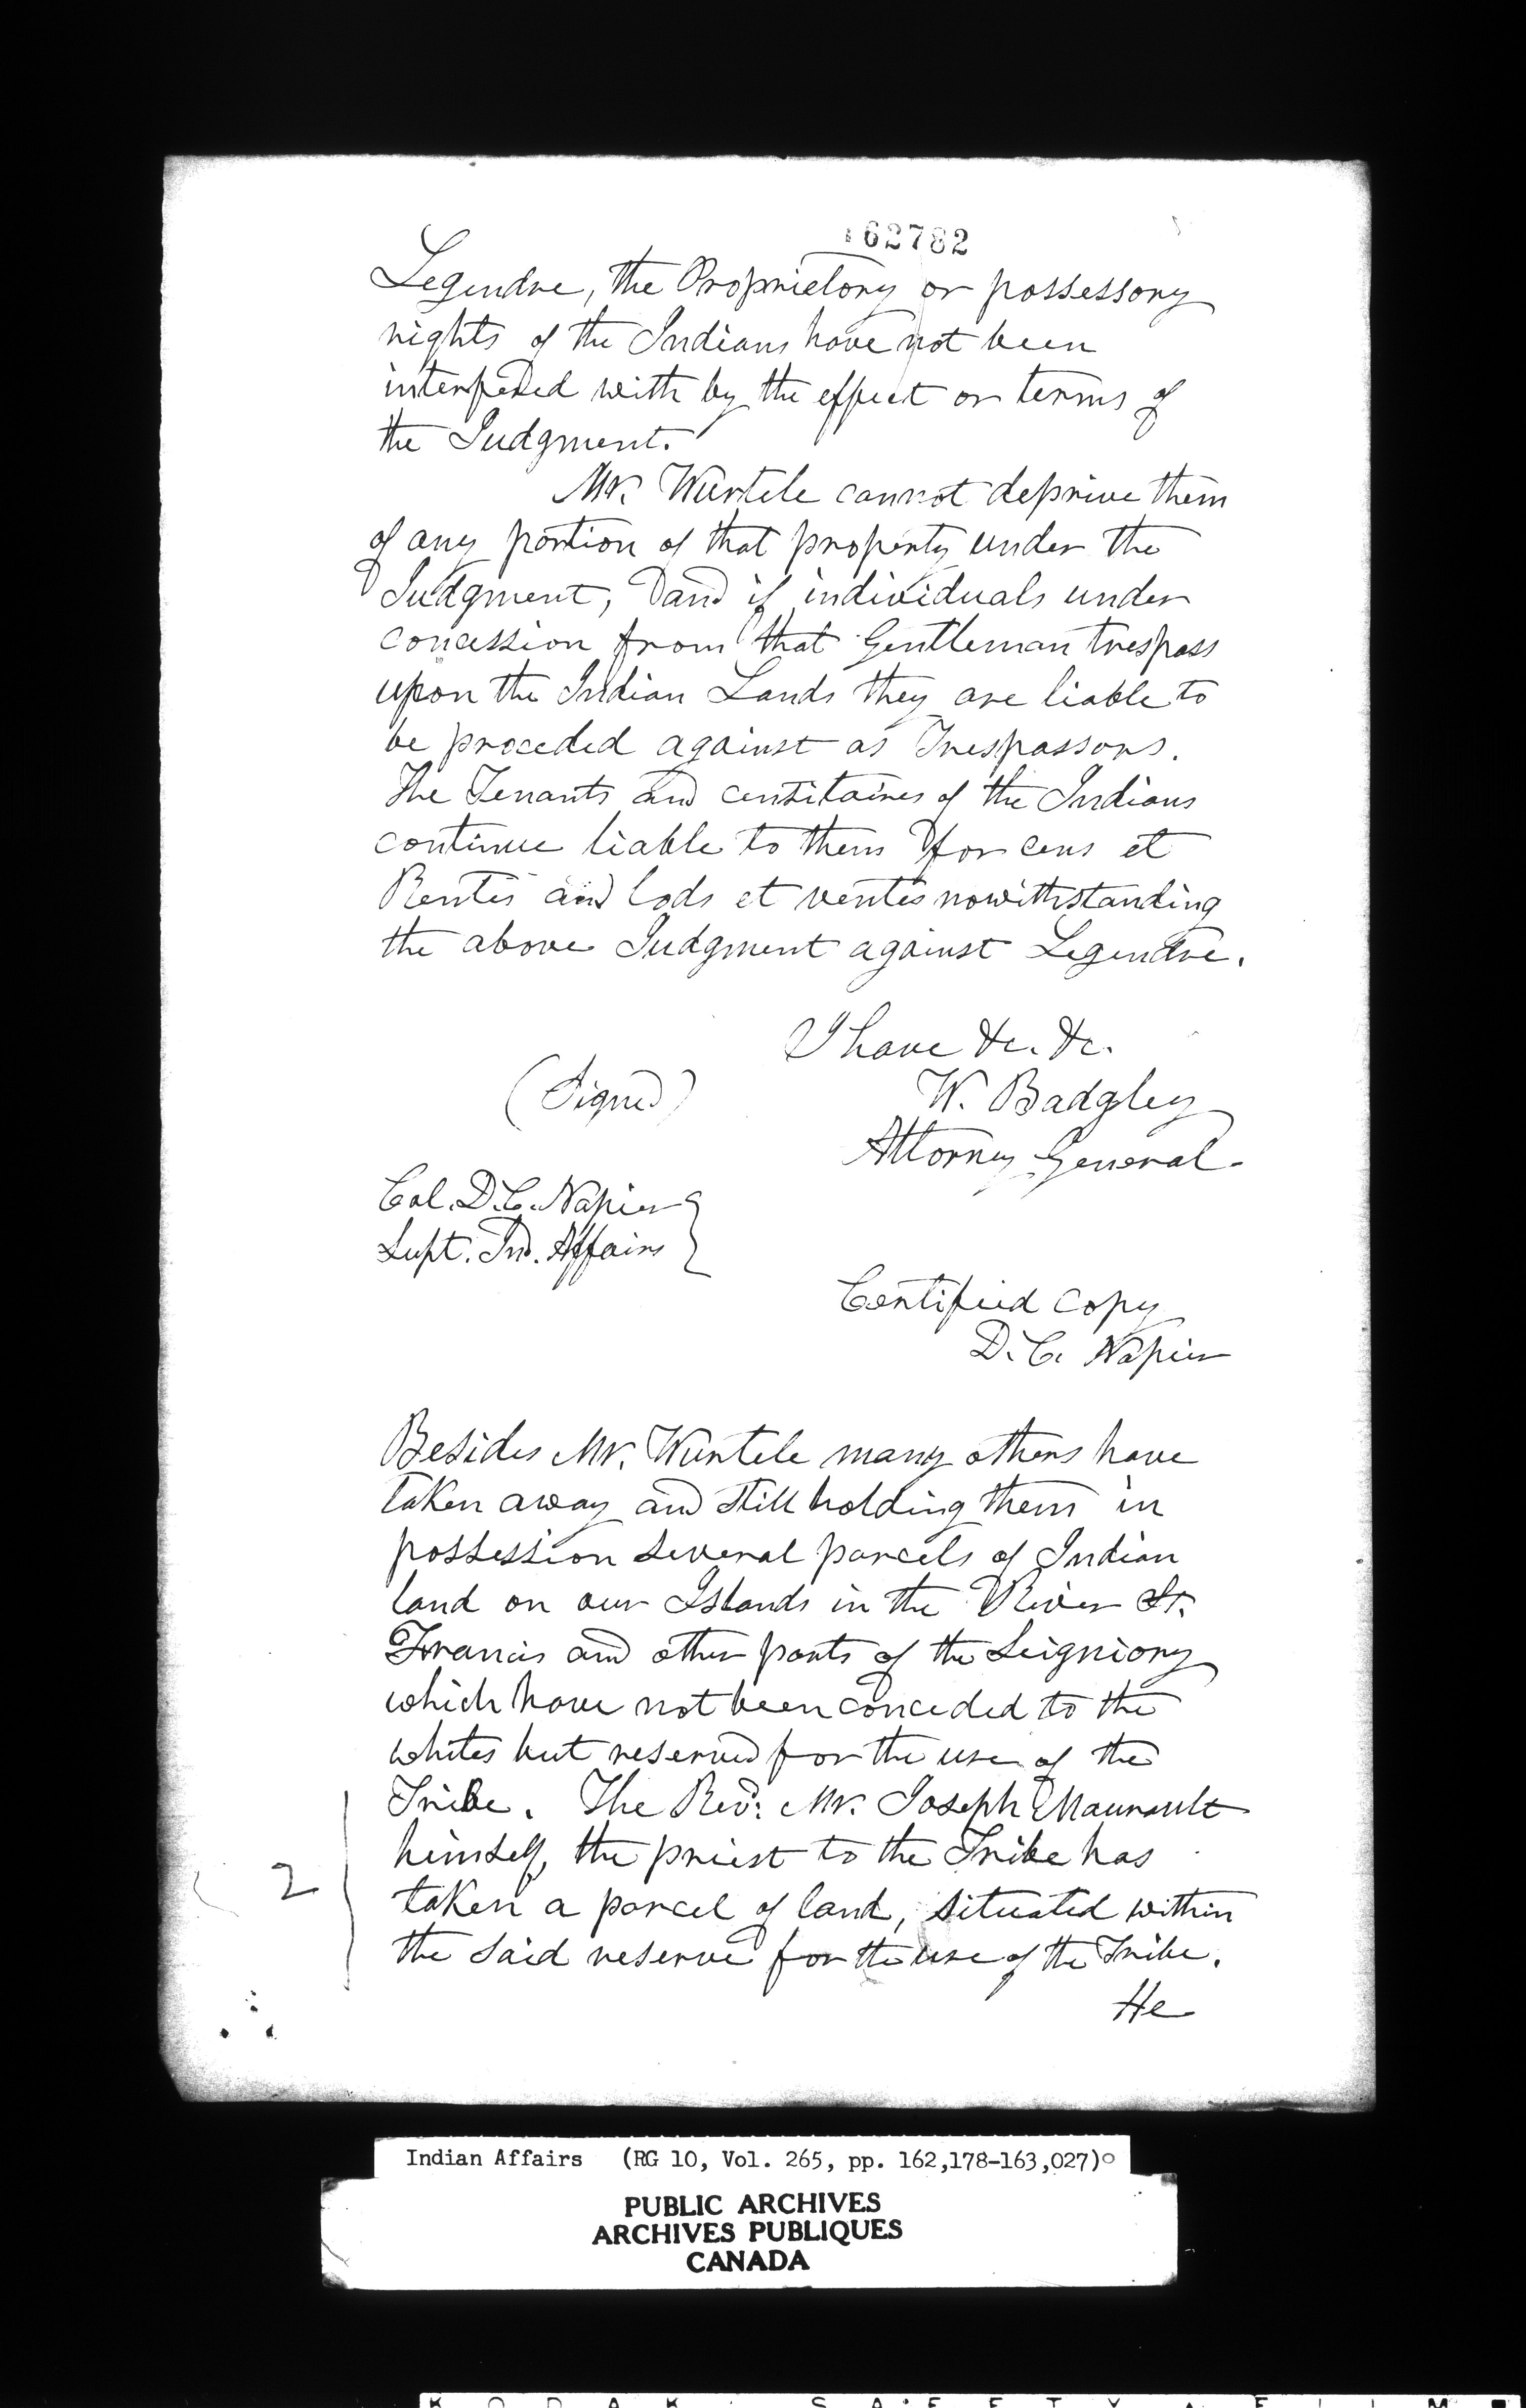 162782
Legendre, the Proprietory or possessory
rights of the Indians have not been
interfered with by the effect or terms of
the Judgment.
Mr. Wurtele cannot deprive them
of any portion of that property under the
Judgment, and if individuals under
concession from that Gentleman trespass
upon the Indian Lands they are liable to
be proceded against as Trespassors.
The Tenants and censitaires of the Indians
continue liable to them for cens et
Rentes and lods et ventes nowithstanding
the above Judgment against Legendre.
I have &c. &c.
(Signed) W. Badgley
Attorney General
Col. D. C. Napier
Supt. Ind. Affairs
Certified Copy
D. C. Napier
Besides Mr. Wurtele many others have
taken away and still holding them in
possession several parcels of Indian
land on our Islands in the River St.
Francis and other parts of the Seigniory
which have not been conceded to the
whites but reserved for the use of the
Tribe. The Revd. Mr. Joseph Maurault
himself, the priest to the Tribe has
2 taken a parcel of land, situated within
the said reserve for the use of the Tribe.
He
Indian Affairs (RG 10, Vol. 265, pp. 162,178-163,027)
PUBLIC ARCHIVES
ARCHIVES PUBLIQUES
CANADA
KODAK SAFETY FILM